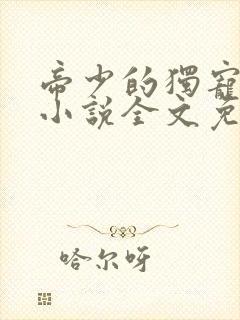 帝少的獨寵
小說全文免
哈尔呀